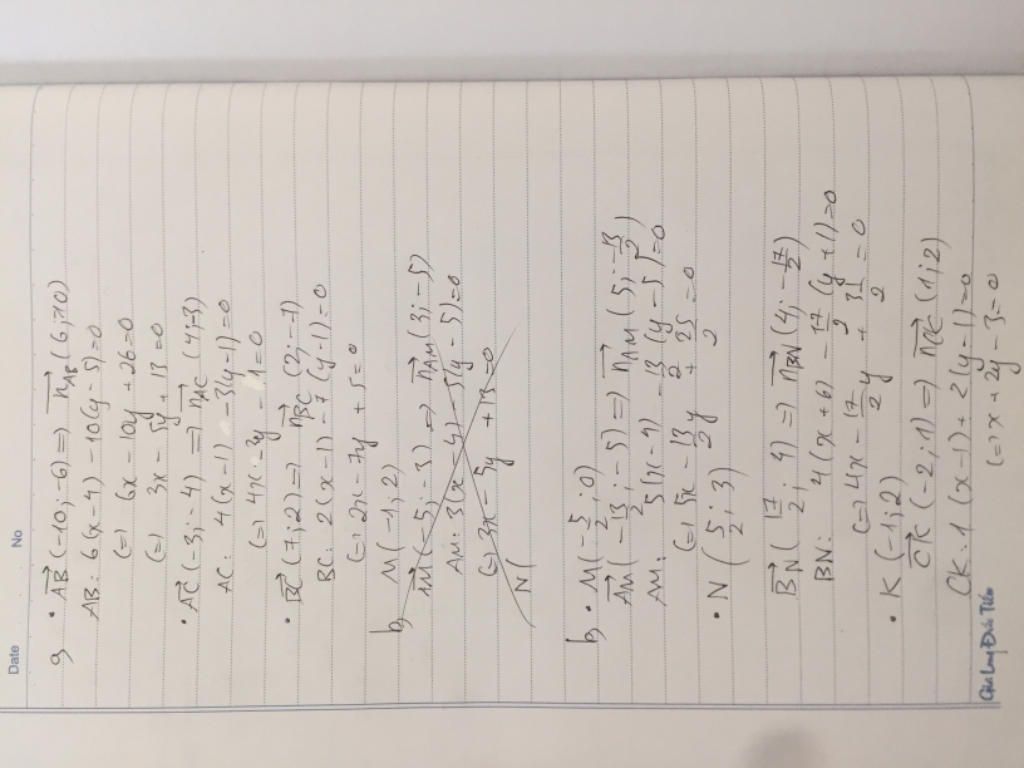 Date No
a, • AB→ (-10; -6) => nAB→ (6; -10)
AB: 6(x-4) - 10(y-5)=0
(=) 6x - 10y + 26=0
(=) 3x - 5y + 13=0
• AC→ (-3; -4) => nAC→ (4;-3)
AC: 4(x-1) - 3(y-1)=0
(=) 4x - 3y - 1=0
• BC→ (7; 2) => nBC→ (2; -7)
BC: 2(x-1) - 7(y-1)=0
(=) 2x - 7y + 5=0
b, M(-1; 2)
AM→ (-5; -3) => nAM→ (3; -5)
AM: 3(x-4) - 5(y-5)=0
(=) 3x - 5y + 13=0
N(
b, • M(-5/2; 0)
AM→ (-13/2; -5) => nAM→ (5; -13/2)
AM: 5(x-4) - 13/2 (y-5)=0
(=) 5x - 13/2 y + 25/2 =0
• N (5/2; 3)
BN→ (17/2; 4) => nBN→ (4; -17/2)
BN: 4(x+6) - 17/2 (y+1)=0
(=) 4x - 17/2 y + 31/2 = 0
• K(-1; 2)
CK→ (-2; 1) => nCK→ (1; 2)
CK: 1(x-1) + 2(y-1)=0
(=) x + 2y - 3=0